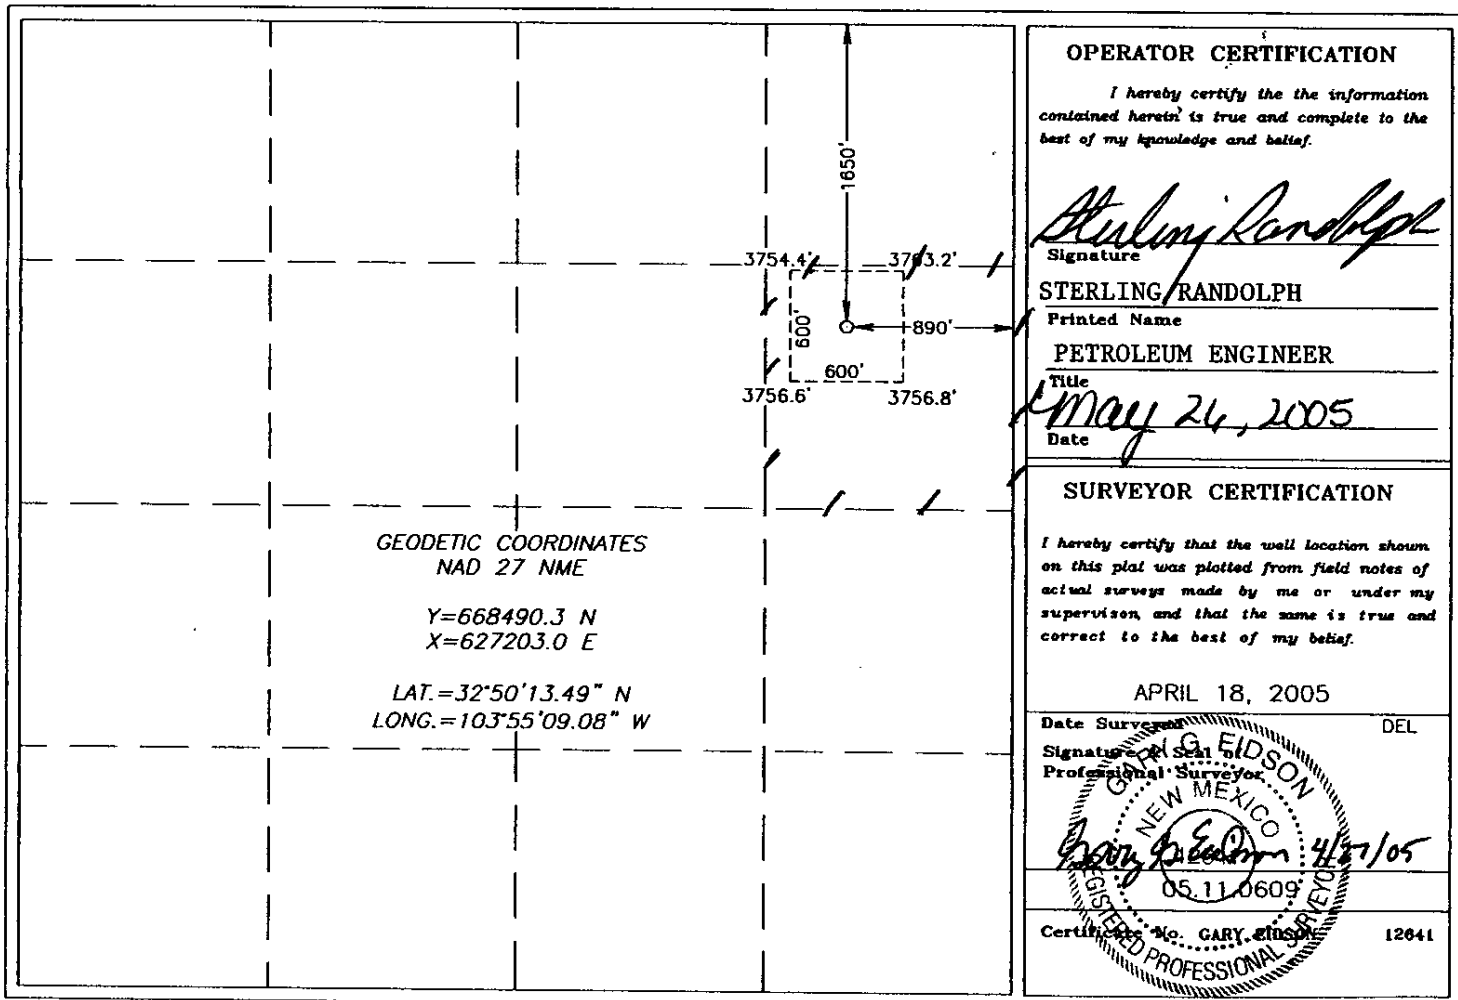 1650'
3754.4'
3763.2'
600'
890'
600'
3756.6'
3756.8'
GEODETIC COORDINATES
NAD 27 NME
Y=668490.3 N
X=627203.0 E
LAT.=32°50'13.49" N
LONG.=103°55'09.08" W
OPERATOR CERTIFICATION
I hereby certify the the information
contained herein is true and complete to the
best of my knowledge and belief.
Sterling Randolph
Signature
STERLING RANDOLPH
Printed Name
PETROLEUM ENGINEER
Title
May 26, 2005
Date
SURVEYOR CERTIFICATION
I hereby certify that the well location shown
on this plat was plotted from field notes of
actual surveys made by me or under my
supervison, and that the same is true and
correct to the best of my belief.
APRIL 18, 2005
Date Surveyed DEL
Signature & Seal of
Professional Surveyor
GARY G. EIDSON
NEW MEXICO
Gary G Eidson 4/27/05
05.11.0609
Certificate No. GARY EIDSON 12641
REGISTERED PROFESSIONAL SURVEYOR